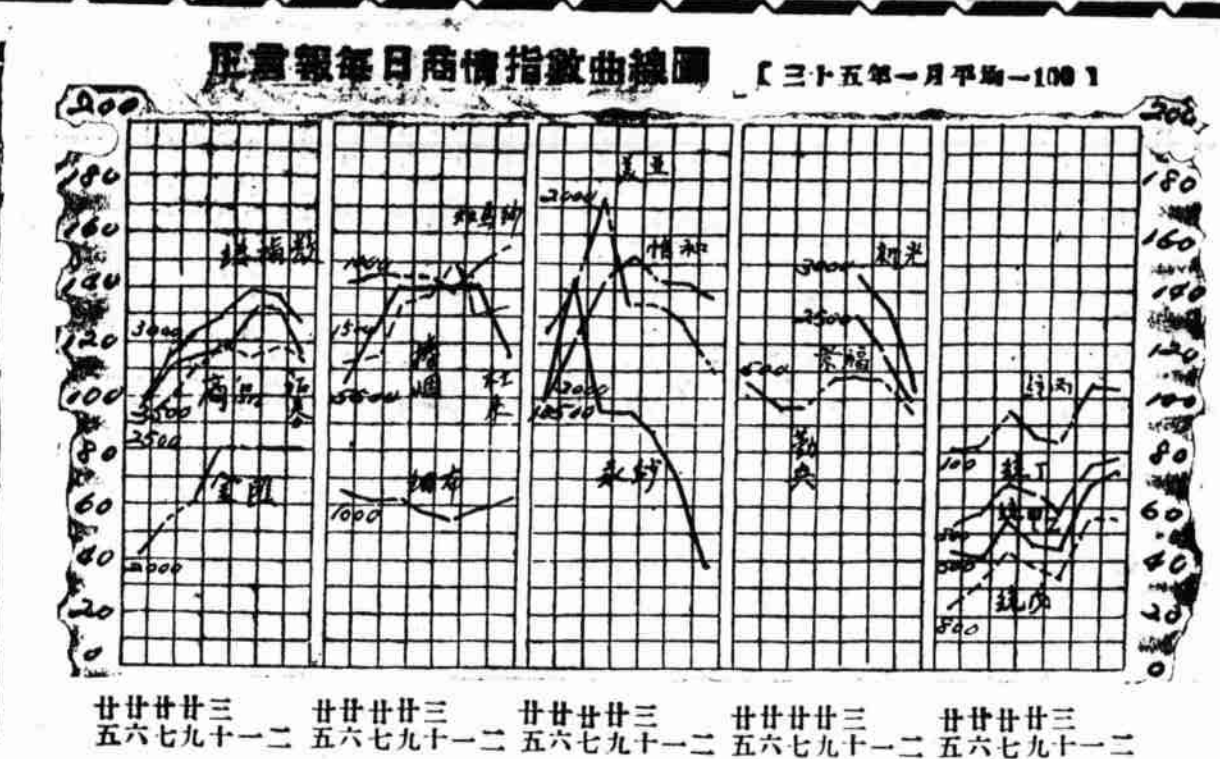 正言報每日商情指數曲線圖
〔三十五年一月平均—100〕
200
180
160
140
120
100
80
60
40
20
0
總指數
3000
商品
證券
2500
金融
2000
1500
細布
1000
美亞
2000
景福
永紗
新光
3000
2500
500
勤興
統丙
100
統丁
統戊
800
200
180
160
140
120
100
80
60
40
20
0
廿廿廿廿三
五六七九十一二
廿廿廿廿三
五六七九十一二
廿廿廿廿三
五六七九十一二
廿廿廿廿三
五六七九十一二
廿廿廿廿三
五六七九十一二